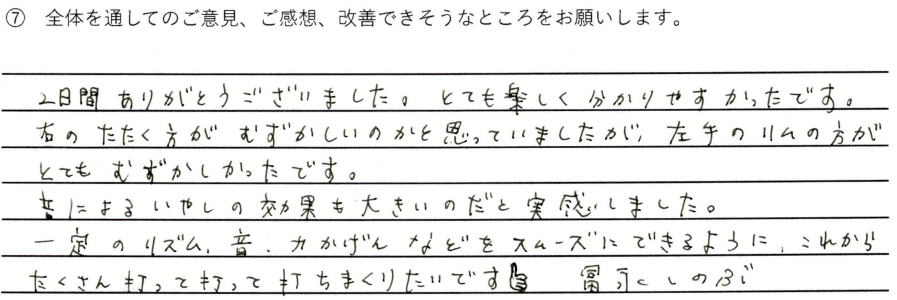 ⑦ 全体を通してのご意見、ご感想、改善できそうなところをお願いします。
2日間 ありがとうございました。とても楽しく 分かりやすかったです。
右の たたく方が むずかしいのかと思っていましたが、左手のリムの方が
とても むずかしかったです。
音による いやしの効果も大きいのだと実感しました。
一定のリズム、音、力かげん などを スムーズに できるように、これから
たくさん打って打って打ちまくりたいです 冨永しのぶ